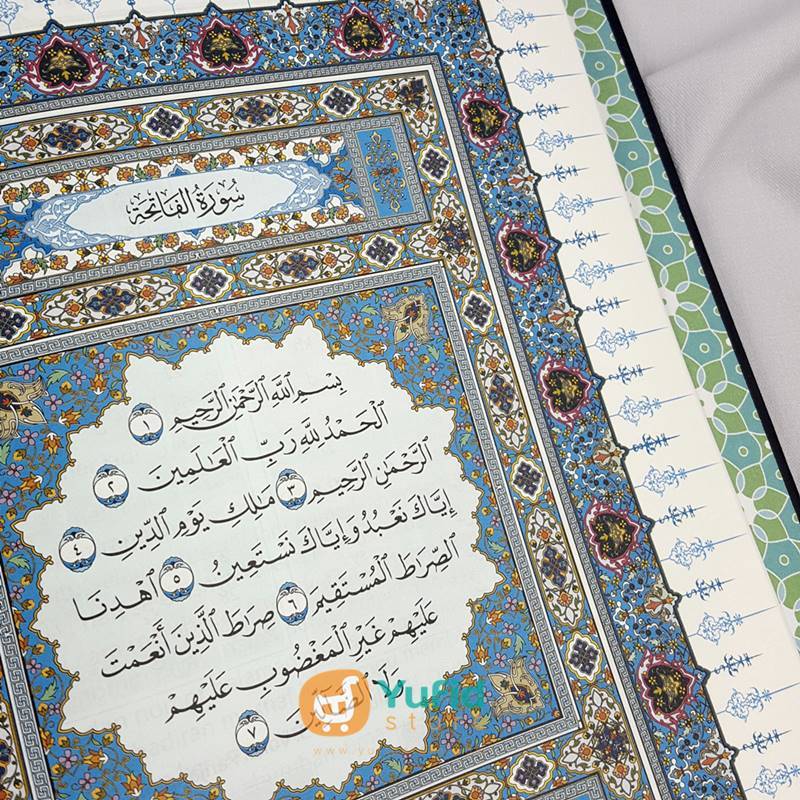 سُورَةُ الْفَاتِحَةِ
بِسْمِ اللَّهِ الرَّحْمَٰنِ الرَّحِيمِ ١
الْحَمْدُ لِلَّهِ رَبِّ الْعَالَمِينَ ٢
الرَّحْمَٰنِ الرَّحِيمِ ٣ مَالِكِ يَوْمِ الدِّينِ ٤
إِيَّاكَ نَعْبُدُ وَإِيَّاكَ نَسْتَعِينُ ٥ اهْدِنَا
الصِّرَاطَ الْمُسْتَقِيمَ ٦ صِرَاطَ الَّذِينَ أَنْعَمْتَ
عَلَيْهِمْ غَيْرِ الْمَغْضُوبِ عَلَيْهِمْ
وَلَا الضَّالِّينَ ٧
Yufid